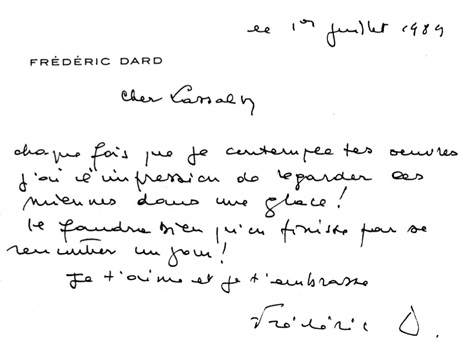 le 1er juillet 1989
FRÉDÉRIC DARD
cher Lassalvy
chaque fois que je contemple tes oeuvres
j'ai l'impression de regarder les
miennes dans une glace !
Il faudra bien qu'on finisse par se
rencontrer un jour !
Je t'aime et je t'embrasse
Frédéric D.